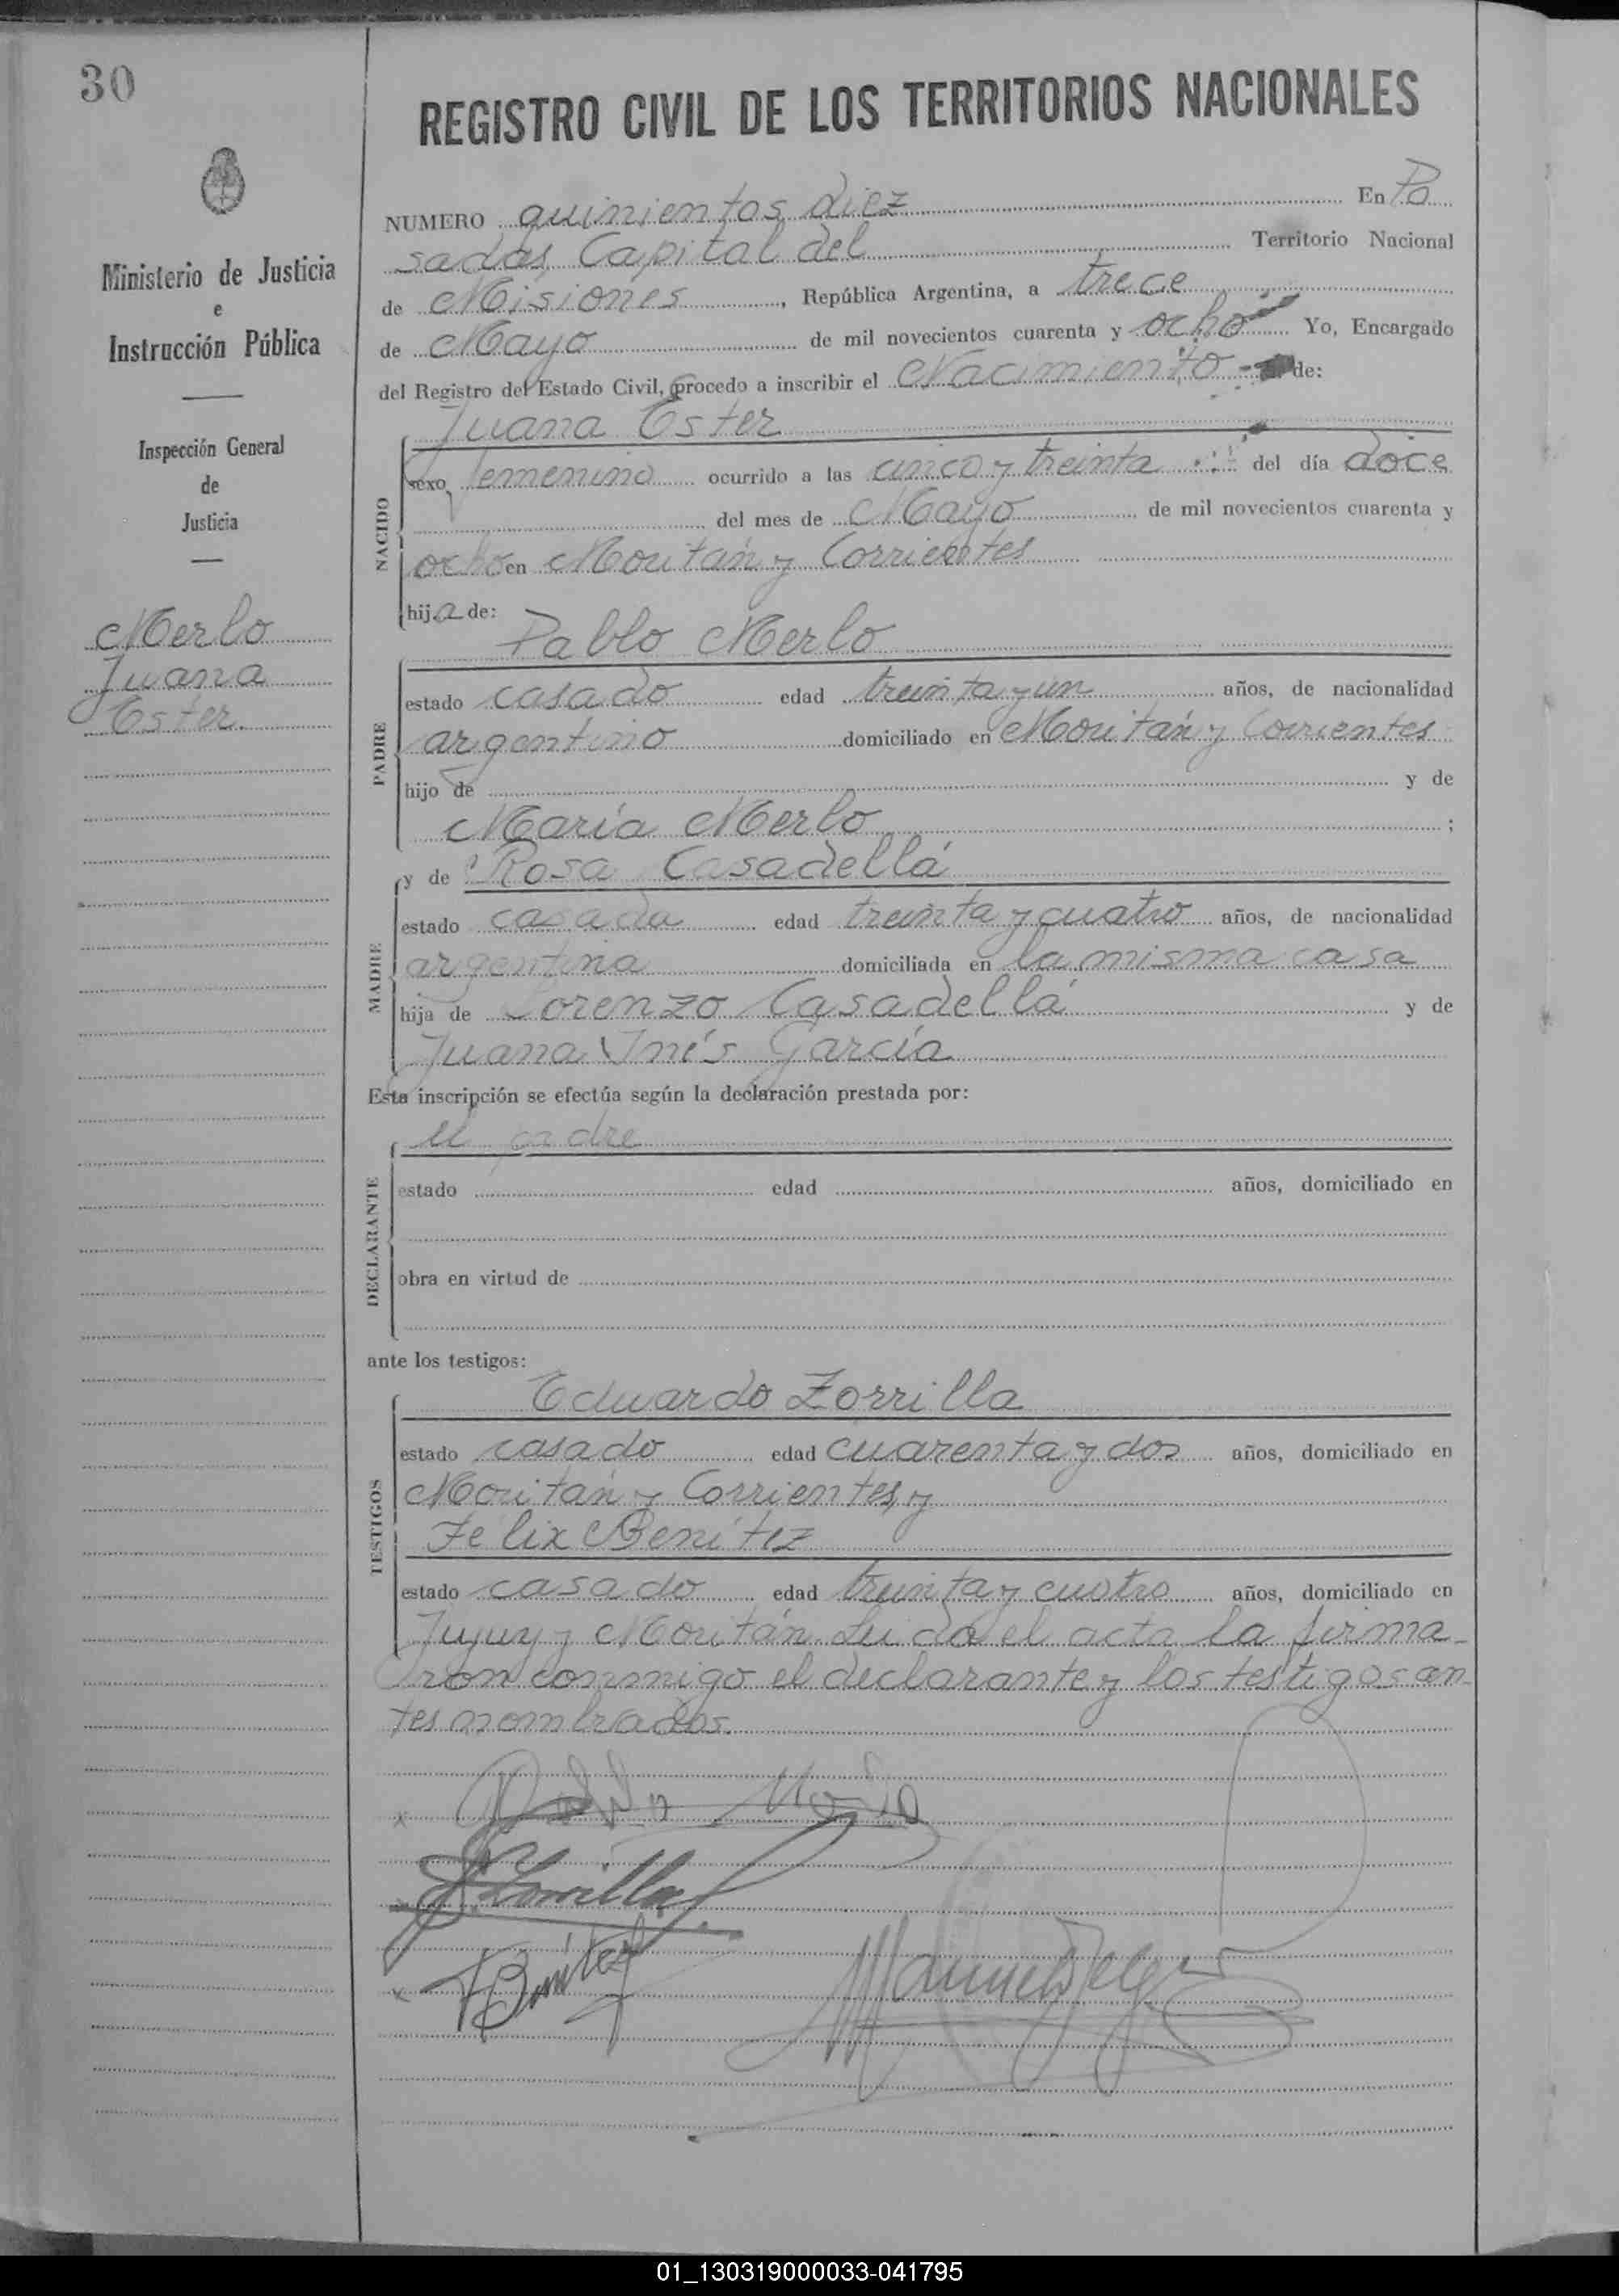 30
REGISTRO CIVIL DE LOS TERRITORIOS NACIONALES
Ministerio de Justicia
e
Instrucción Pública
Inspección General
de
Justicia
Merlo
Juana
Ester.
NUMERO quinientos diez En Po
sadas, Capital del Territorio Nacional
de Misiones, República Argentina, a trece
de Mayo de mil novecientos cuarenta y ocho Yo, Encargado
del Registro del Estado Civil, procedo a inscribir el Nacimiento de:
Juana Ester
NACIDO
sexo femenino ocurrido a las cinco y treinta del día doce
del mes de Mayo de mil novecientos cuarenta y
ocho en Moritán y Corrientes
hija de:
Pablo Merlo
PADRE
estado casado edad treinta y un años, de nacionalidad
argentino domiciliado en Moritán y Corrientes
hijo de y de
María Merlo ;
y de Rosa Casadellá
MADRE
estado casada edad treinta y cuatro años, de nacionalidad
argentina domiciliada en la misma casa
hija de Lorenzo Casadellá y de
Juana Inés García
Esta inscripción se efectúa según la declaración prestada por:
el padre
DECLARANTE
estado edad años, domiciliado en
obra en virtud de
ante los testigos:
Eduardo Zorrilla
TESTIGOS
estado casado edad cuarenta y dos años, domiciliado en
Moritán y Corrientes, y
Felix Benítez
estado casado edad treinta y cuatro años, domiciliado en
Jujuy y Moritán. Leida el acta la firma-
ron conmigo el declarante y los testigos an-
tes nombrados.
Pablo Merlo
Zorrilla
F Benítez
01_130319000033-041795